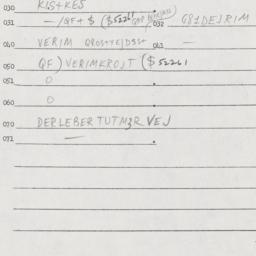 030 KIS+KES
031 —/QF+$ ($52261 032 G81DEJRIM
040 VERIM 041 —
050 QF) VERIMKROJT ($52261
051 0
060 0
070 DERLEBERTUTMZR VEJ
071 —